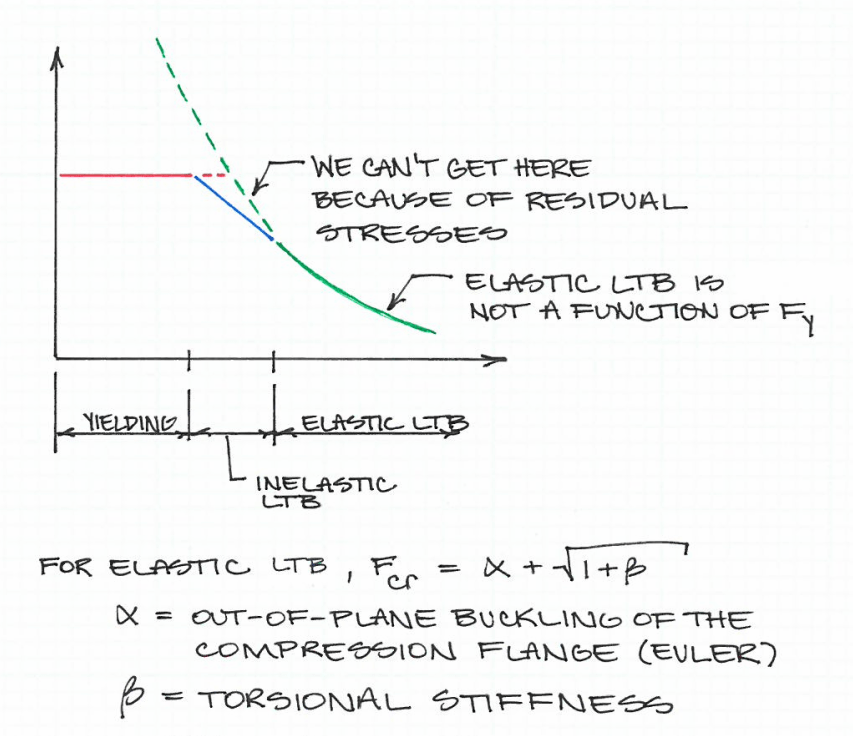 WE CAN'T GET HERE
BECAUSE OF RESIDUAL
STRESSES
ELASTIC LTB IS
NOT A FUNCTION OF Fy
YIELDING
ELASTIC LTB
INELASTIC
LTB
FOR ELASTIC LTB, Fcr = α + √1+β
α = OUT-OF-PLANE BUCKLING OF THE
COMPRESSION FLANGE (EULER)
β = TORSIONAL STIFFNESS